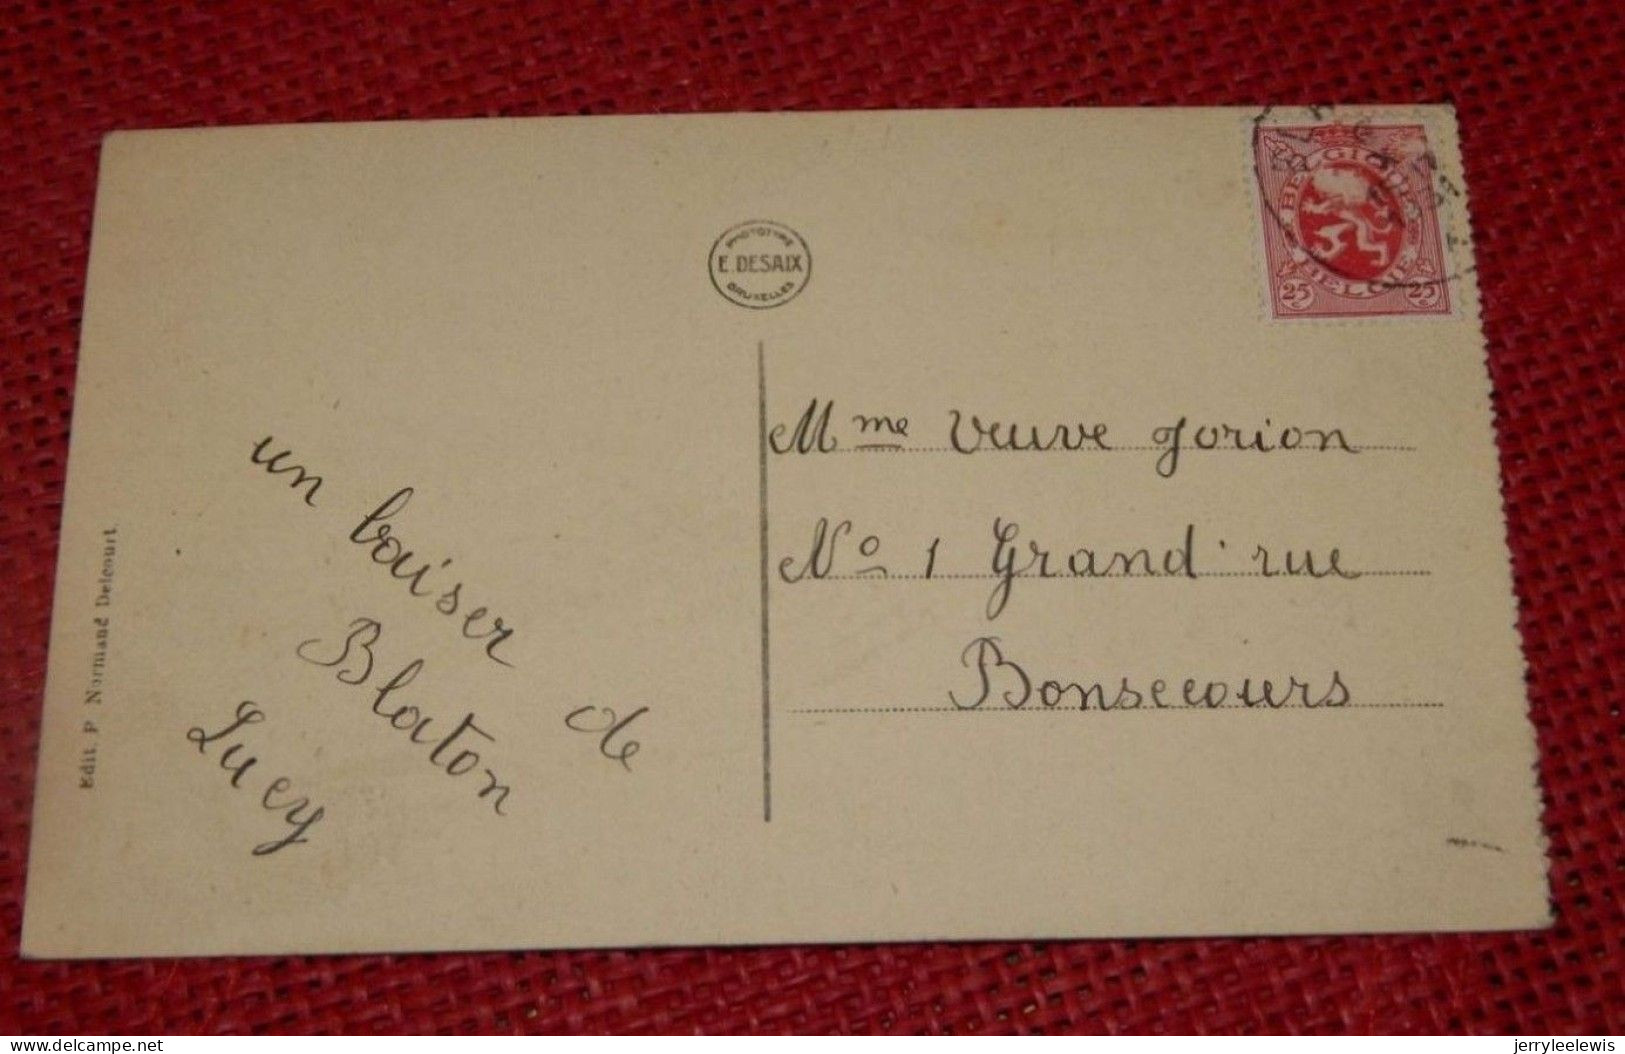 PHOTOTYPE
E. DESAIX
BRUXELLES
BELGIQUE
BELGIE
25 25
un baiser de
Blaton
Lucy
Mme Veuve Jorion
No 1 Grand rue
Bonsecours
Edit. P. Normand Delcourt.
delcampe.net
jerryleelewis